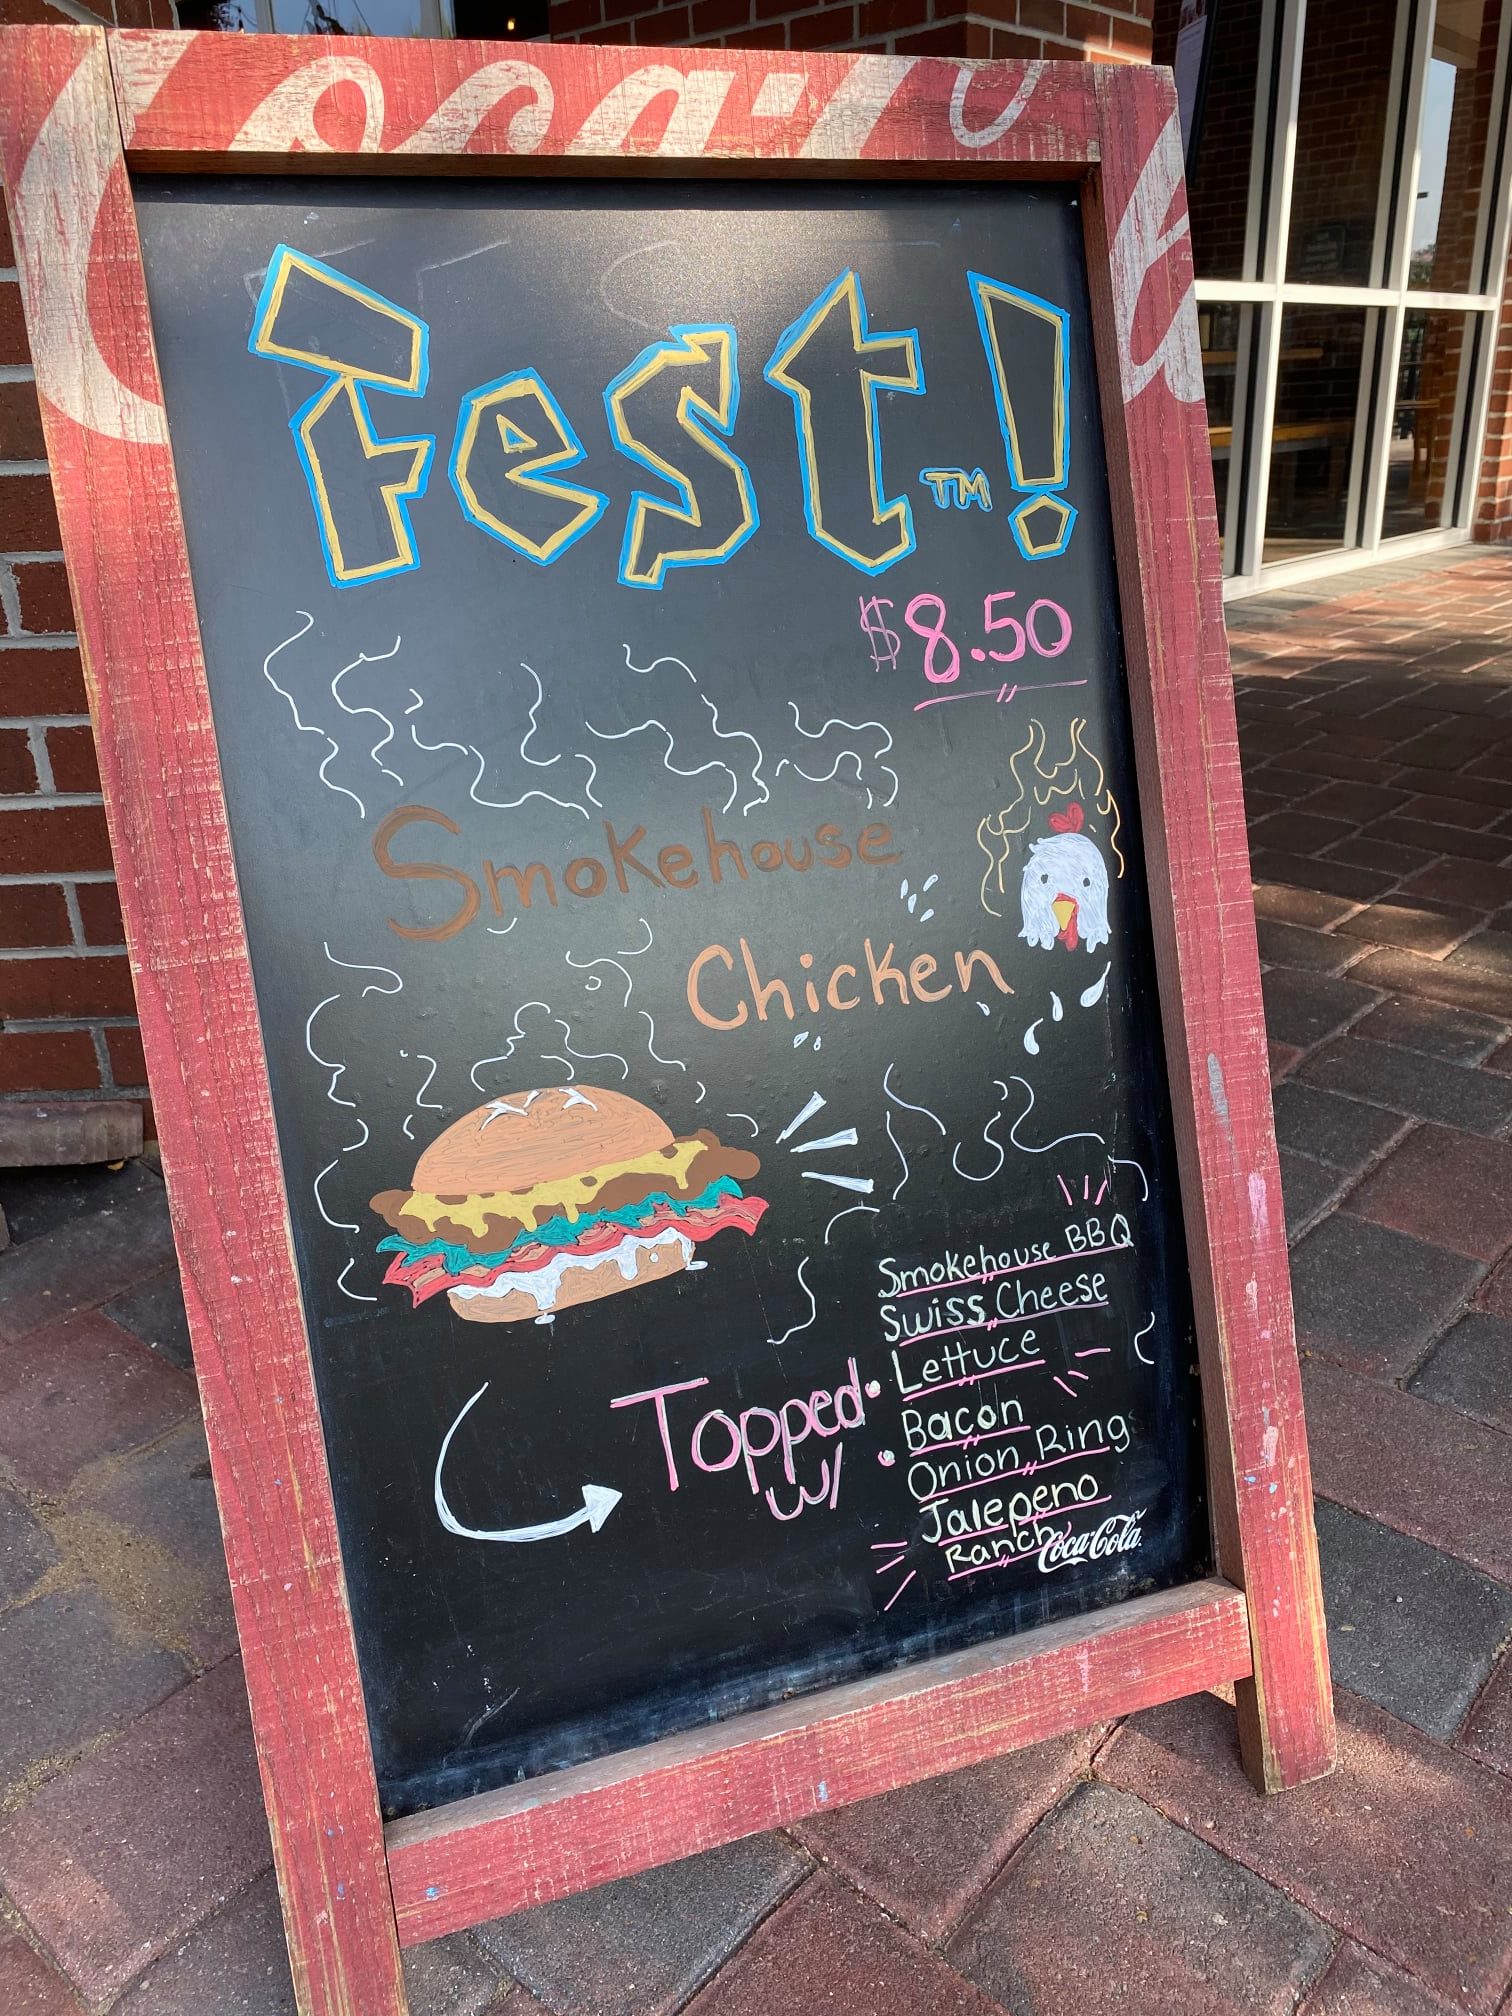 Coca-Cola
Fest!
TM
$8.50
Smokehouse
Chicken
Topped
w/
Smokehouse BBQ
Swiss Cheese
• Lettuce
Bacon
• Onion Rings
Jalepeno
Ranch
Coca-Cola